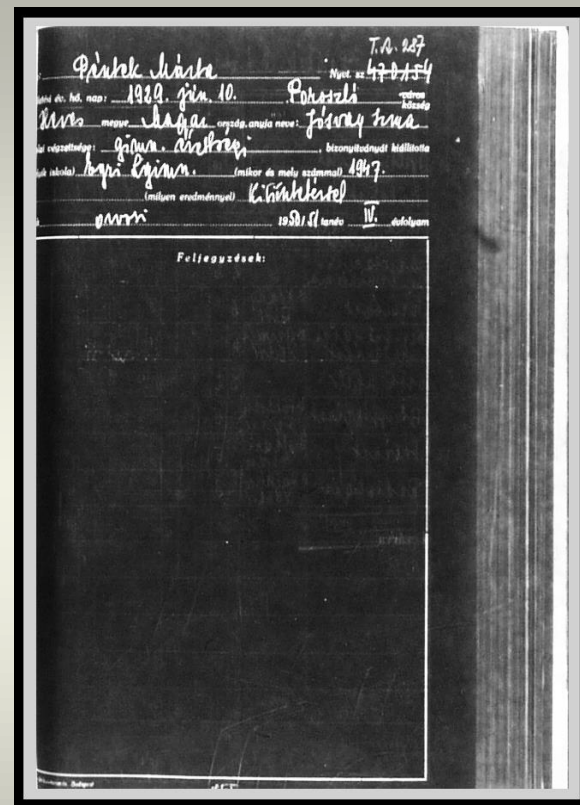 T.A. 287
Péntek Márta Nyt. sz. 470154
év, hó, nap: 1929. jún. 10. Poroszló város
község
Heves megye Magyar ország, anyja neve: Jósvay Irma
végzettsége: gimn. érettségi, bizonyítványát kiállította
iskola) Egri L.gimn. (mikor és mely számmal) 1947.
(milyen eredménnyel) Kitüntetéssel
orvosi 1950/51 tanév IV. évfolyam
Feljegyzések: